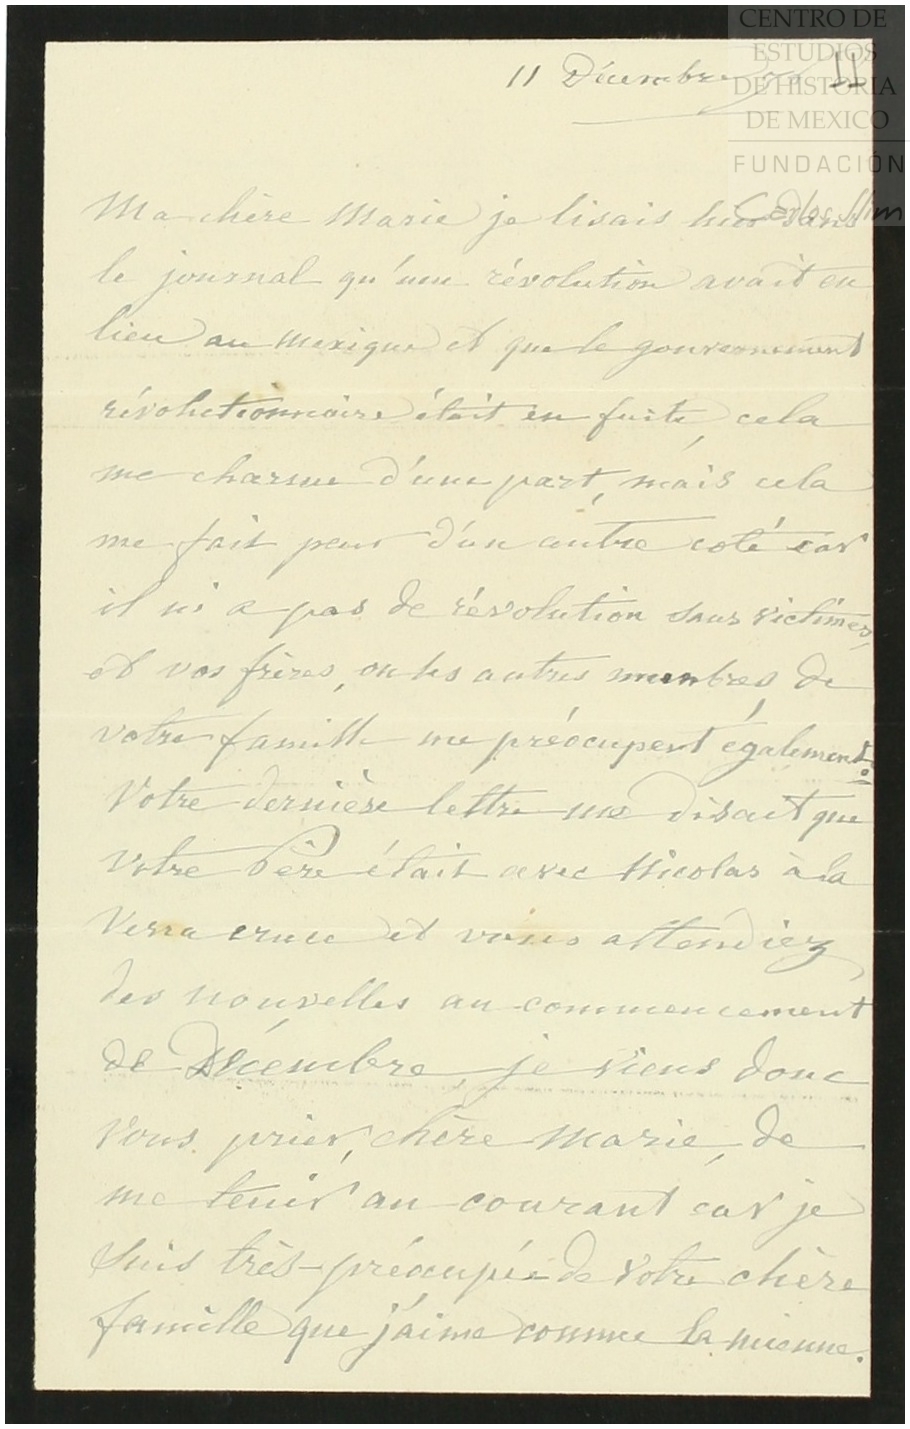 CENTRO DE
ESTUDIOS
DE HISTORIA
DE MEXICO
FUNDACIÓN
Carlos Slim
11 Décembre 11
Ma chère Marie je lisais hier dans
le journal qu'une révolution avait eu
lieu au Mexique et que le gouvernement
révolutionnaire était en fuite, cela
me charme d'une part, mais cela
me fait peur d'un autre coté car
il ni a pas de révolution sans victimes,
et vos frères, ou les autres membres de
votre famille me préocupent également.
Votre dernière lettre me disait que
votre Père était avec Nicolas à la
Verra cruce et vous attendiez
des nouvelles au commencement
de Décembre, je viens donc
vous prier, chère Marie, de
me tenir au courant car je
suis très-préocupée de votre chère
famille que j'aime comme la mienne.